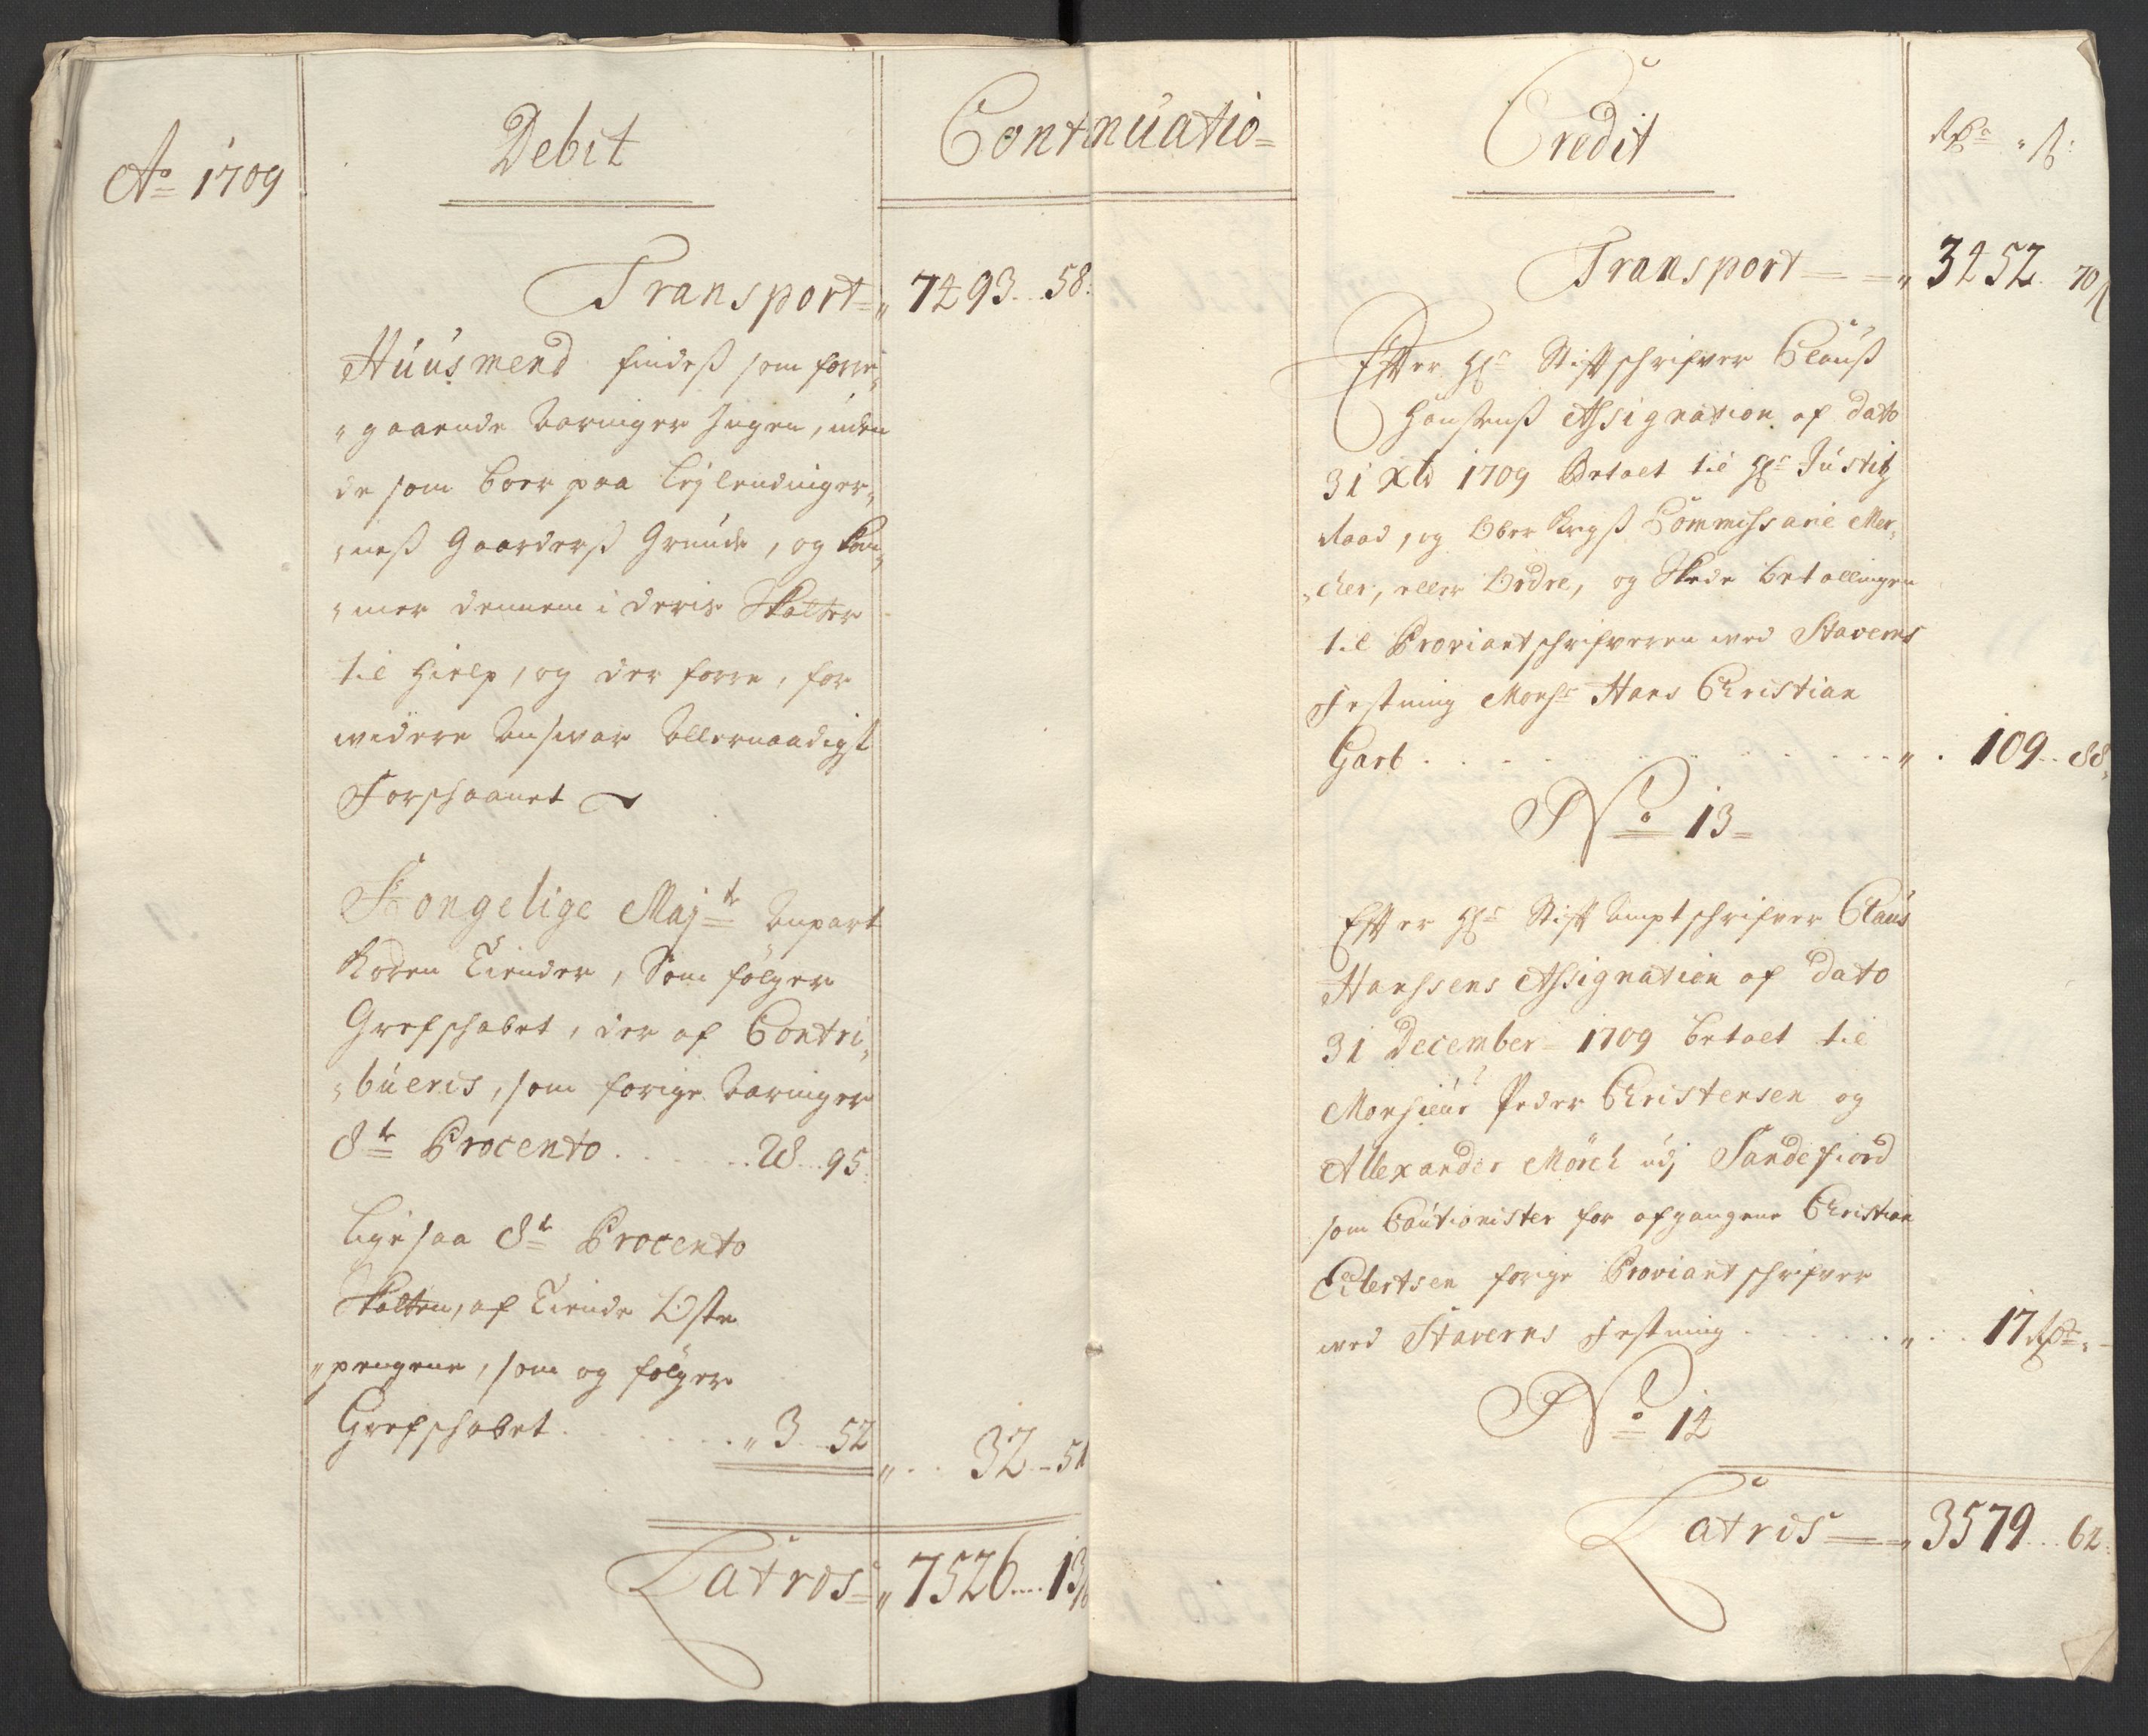 Ao 1709
Debit
Continuatio=
Transport= „ 7493...58:
Huusmend findeß som forre,
„gaaende Aaringer Ingen, uden
de som boer paa Leylendinger„
„neß Gaarderß Grunde, og kom„
„mer dennem i deris Skatter
til Hielp, og der forre, for
widere Answar Allernaadigst
Forschaanet
Kongelige Majts Anpart
Koren Tiender, Som følger
Grefschabet, der af Contri„
„bueris, som forige Aaringer
8te Procento . . . . . . 28...95:
Ligesaa 8te Procento
Skatten, af Tiende Oste
„pengene, som og følger
Grefschabet . . . . . . „ 3...52
„ . . 32...51
Latros= „ 7526....13
Credit
Rdr „ ß:
Transport = = „ 3452. 70ß
Efter Hr Stiftschrifver Clauß
Hansenß Assignation af dato
31 Xbr 1709 Betalt til Hr Justitz
Raad, og Ober Krigß Commissarie Mer„
„cher, eller Ordre, og Skede betallingen
til Proviantschrifveren wed Staverns
Festning Monsr Hans Christian
Garb . . . . . . . . „ . 109...88„
No 13=
Efter Hr Stift Amptschrifver Claus
Hanssens Assignation af Dato
31 December 1709 betalt til
Monsieur Peder Christensen og
Allexander Mörch udj Sandefiord
som Cautionister for afgangene Christian
Eilertsen forige Proviantschrifver
wed Staverns Festning . . . . . . „ . . 17 Rdr „ -
No 14
Latris = „ 3579...62: